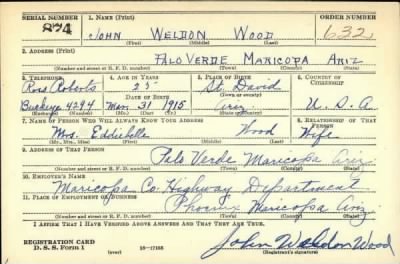 SERIAL NUMBER 1. Name (Print) ORDER NUMBER
874 John Weldon Wood 632
(First) (Middle) (Last)
2. Address (Print)
Palo Verde Maricopa Ariz
(Number and street or R. F. D. number) (Town) (County) (State)
3. Telephone 4. Age in Years 5. Place of Birth 6. Country of Citizenship
Ross Roberts 25 St. David
Buckeye 4294 Mar. 31 1915 Ariz U.S.A.
7. Name of Person Who Will Always Know Your Address 8. Relationship of That Person
Mrs. Wood Wife
(Mr., Mrs., Miss) (First) (Middle) (Last)
9. Address of That Person
Palo Verde Maricopa Ariz
(Number and street or R. F. D. number) (Town) (County) (State)
10. Employer's Name
Maricopa Co. Highway Department
11. Place of Employment or Business
Phoenix Maricopa Ariz
(Number and street or R. F. D. number) (Town) (County) (State)
I Affirm That I Have Verified Above Answers and That They Are True.
REGISTRATION CARD John Weldon Wood
D. S. S. Form 1 (over) (Registrant's signature)